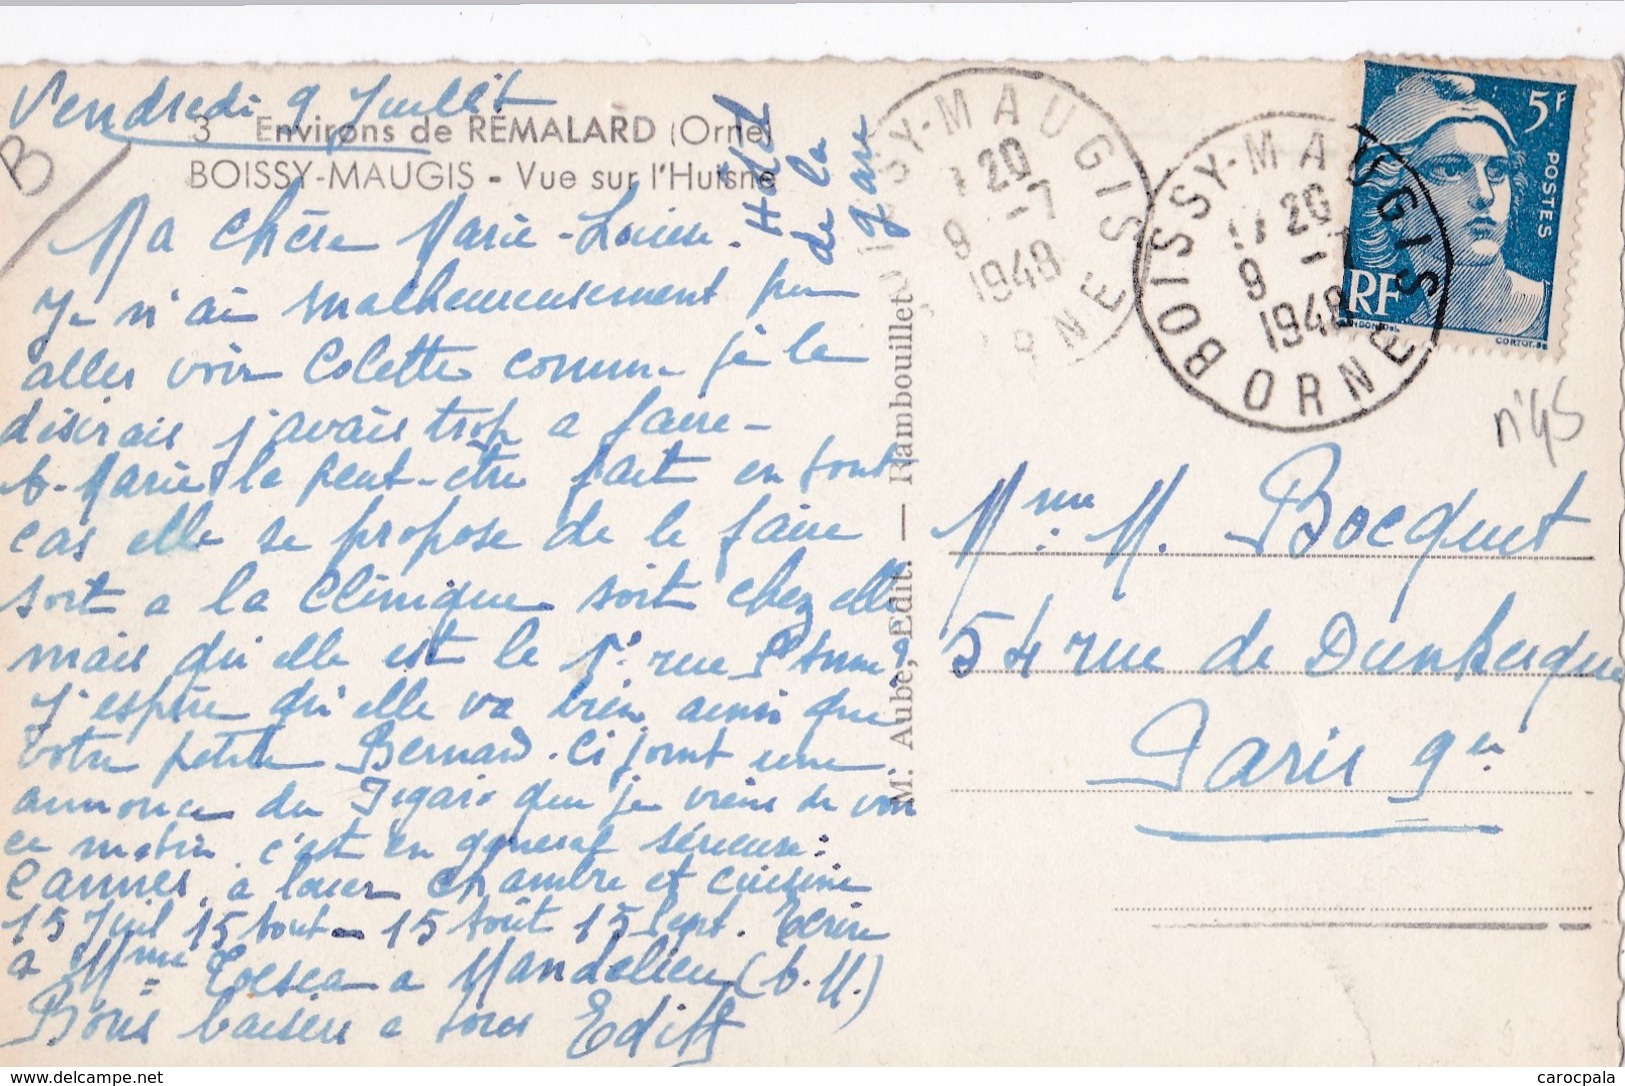 Vendredi 9 Juillet
3 Environs de RÉMALARD (Orne)
BOISSY-MAUGIS - Vue sur l'Huisne
Hôtel
de la
Gare
Ma chère Marie-Louise.
Je n'ai malheureusement pu
aller voir Colette comme je le
désirais j'avais trop a faire -
b-Marie le peut-être fait en tout
cas elle se propose de le faire
soit a la Clinique soit chez elle
mais qu'elle est le n° rue St Anne ?
J'espère qu'elle va bien ainsi que
votre petite Bernard. Ci joint une
annonce du Figaro que je viens de voir
ce matin. c'est en general sérieuse :
Cannes. a louer chambre et cuisine
15 Juil 15 Aout - 15 Août 15 Sept. Ecrire
a Mme a Mandelieu (A.M.)
Bons baisers a tous Edith
M. Aubé, Edit. — Rambouillet
BOISSY-MAUGIS
20
9 -7
1948
ORNE
BOISSY-MAUGIS
17 20
9 -7
1948
ORNE
5F
POSTES
RF
GANDON Del.
CORTOT. Sc
B
n°45
Mme M. Bocquet
54 rue de Dunkerque
Paris 9e
www.delcampe.net
carocpala